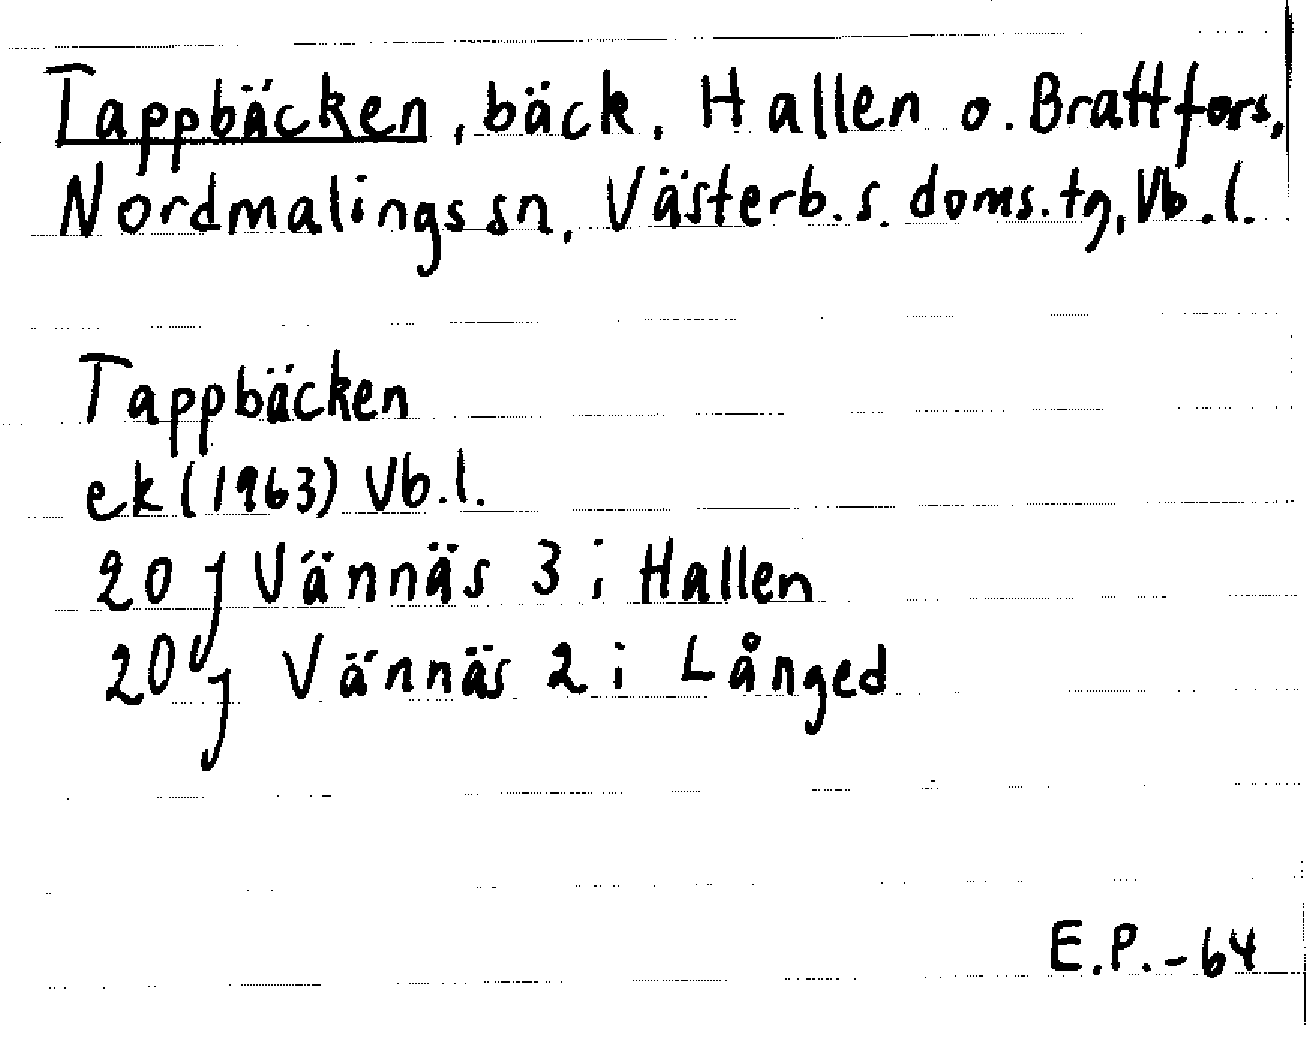 Tappbäcken, bäck, Hallen o. Brattfors,
Nordmalings sn, Västerb. s. doms. tg, Vb. l.
Tappbäcken
ek (1963) Vb. l.
20 J Vännäs 3 i Hallen
20 J Vännäs 2 i Långed
E.P.-64